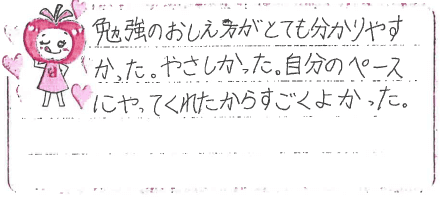 勉強のおしえ方がとても分かりやす
かった。やさしかった。自分のペース
にやってくれたからすごくよかった。